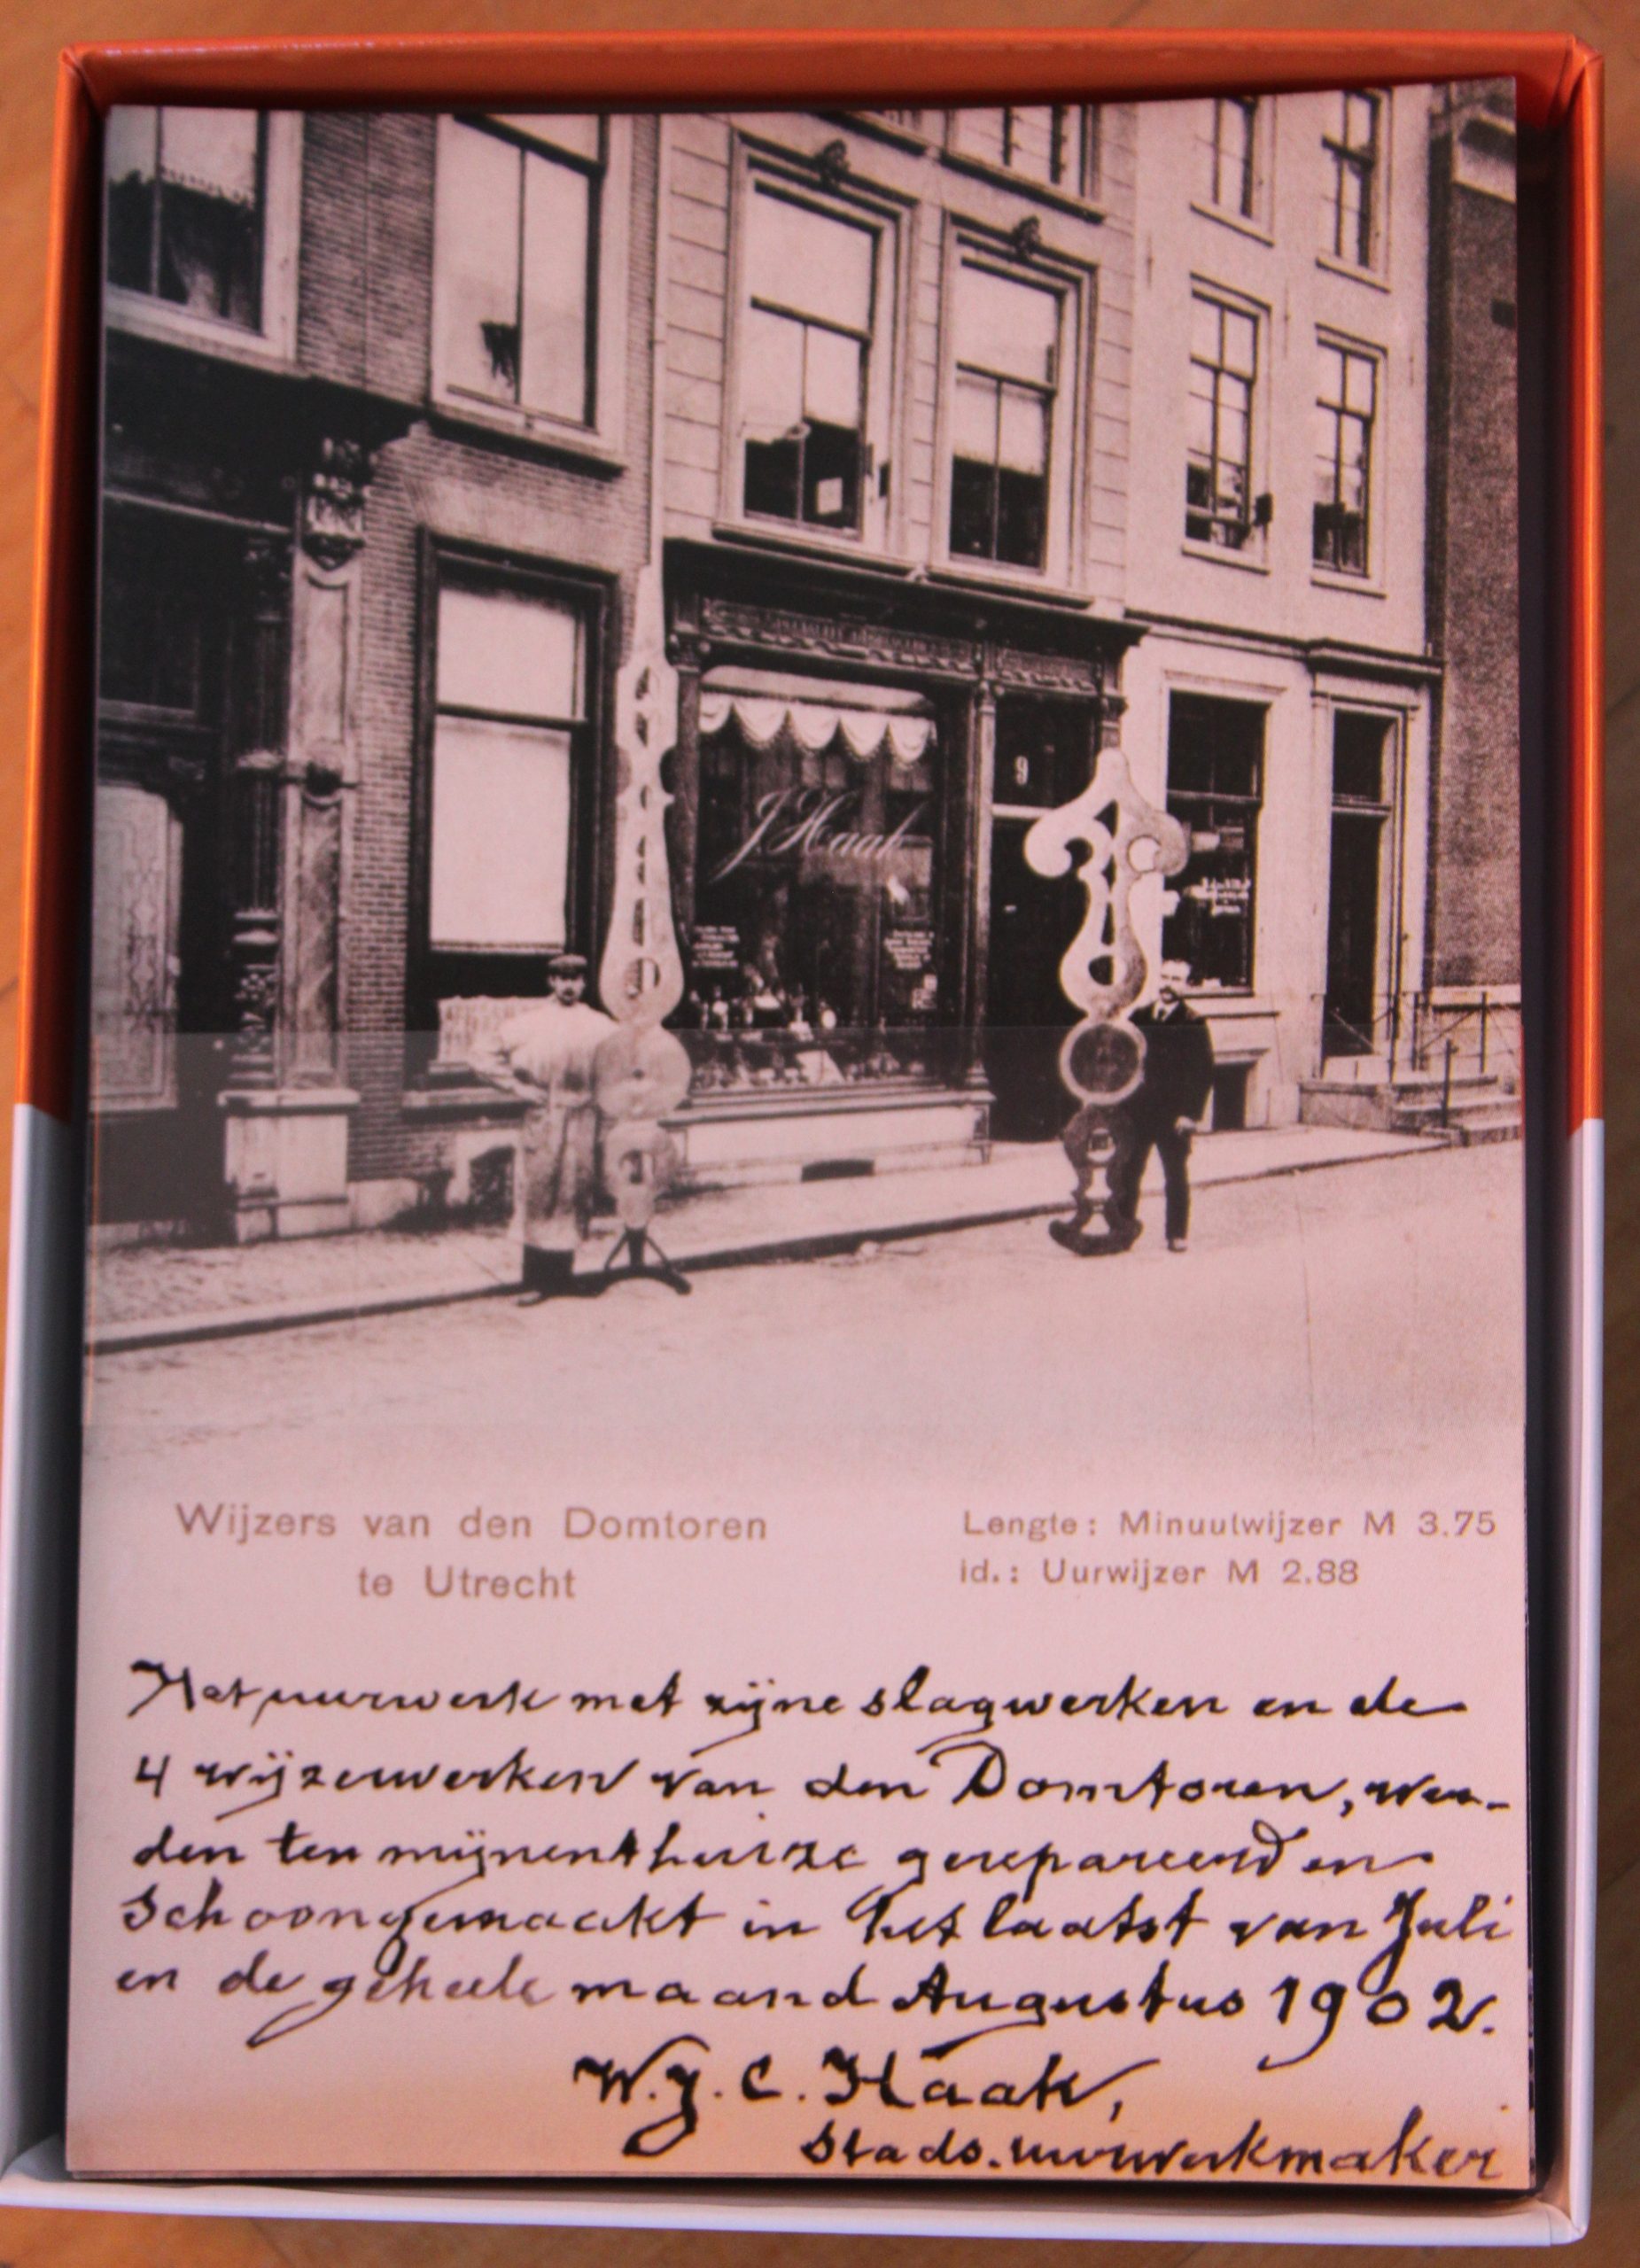 J. Haak
9
Wijzers van den Domtoren
te Utrecht
Lengte: Minuutwijzer M 3.75
id.: Uurwijzer M 2.88
Het uurwerk met zijne slagwerken en de
4 wijzerwerken van den Domtoren, wer-
den ten mijnent huize gerepareerd en
schoongemaakt in het laatst van Juli
en de geheele maand Augustus 1902.
W. J. C. Haak,
Stads-uurwerkmaker